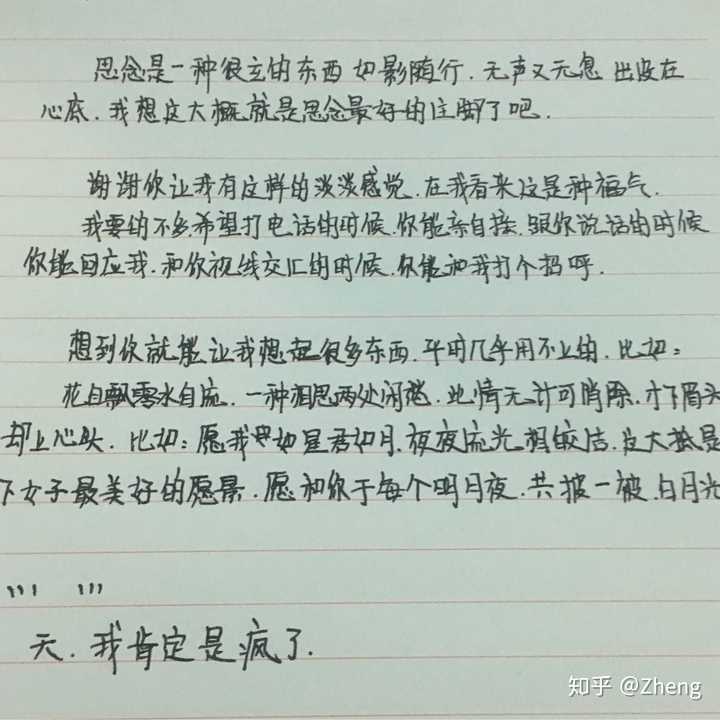 思念是一种很玄的东西 如影随行.无声又无息 出没在
心底.我想这大概就是思念最好的注脚了吧.
谢谢你让我有这样的淡淡感觉.在我看来这是种福气.
我要的不多.希望打电话的时候.你能亲自接.跟你说话的时候
你能回应我.和你视线交汇的时候.你能和我打个招呼.
想到你就能让我想起很多东西.平时几乎用不上的.比如:
花自飘零水自流.一种相思两处闲愁.此情无计可消除.才下眉头
却上心头.比如:愿我如星君如月.夜夜流光相皎洁.这大抵是
下女子最美好的愿景.愿和你于每个明月夜.共披一被白月光
,,, ,,,
天.我肯定是疯了.
知乎 @Zheng